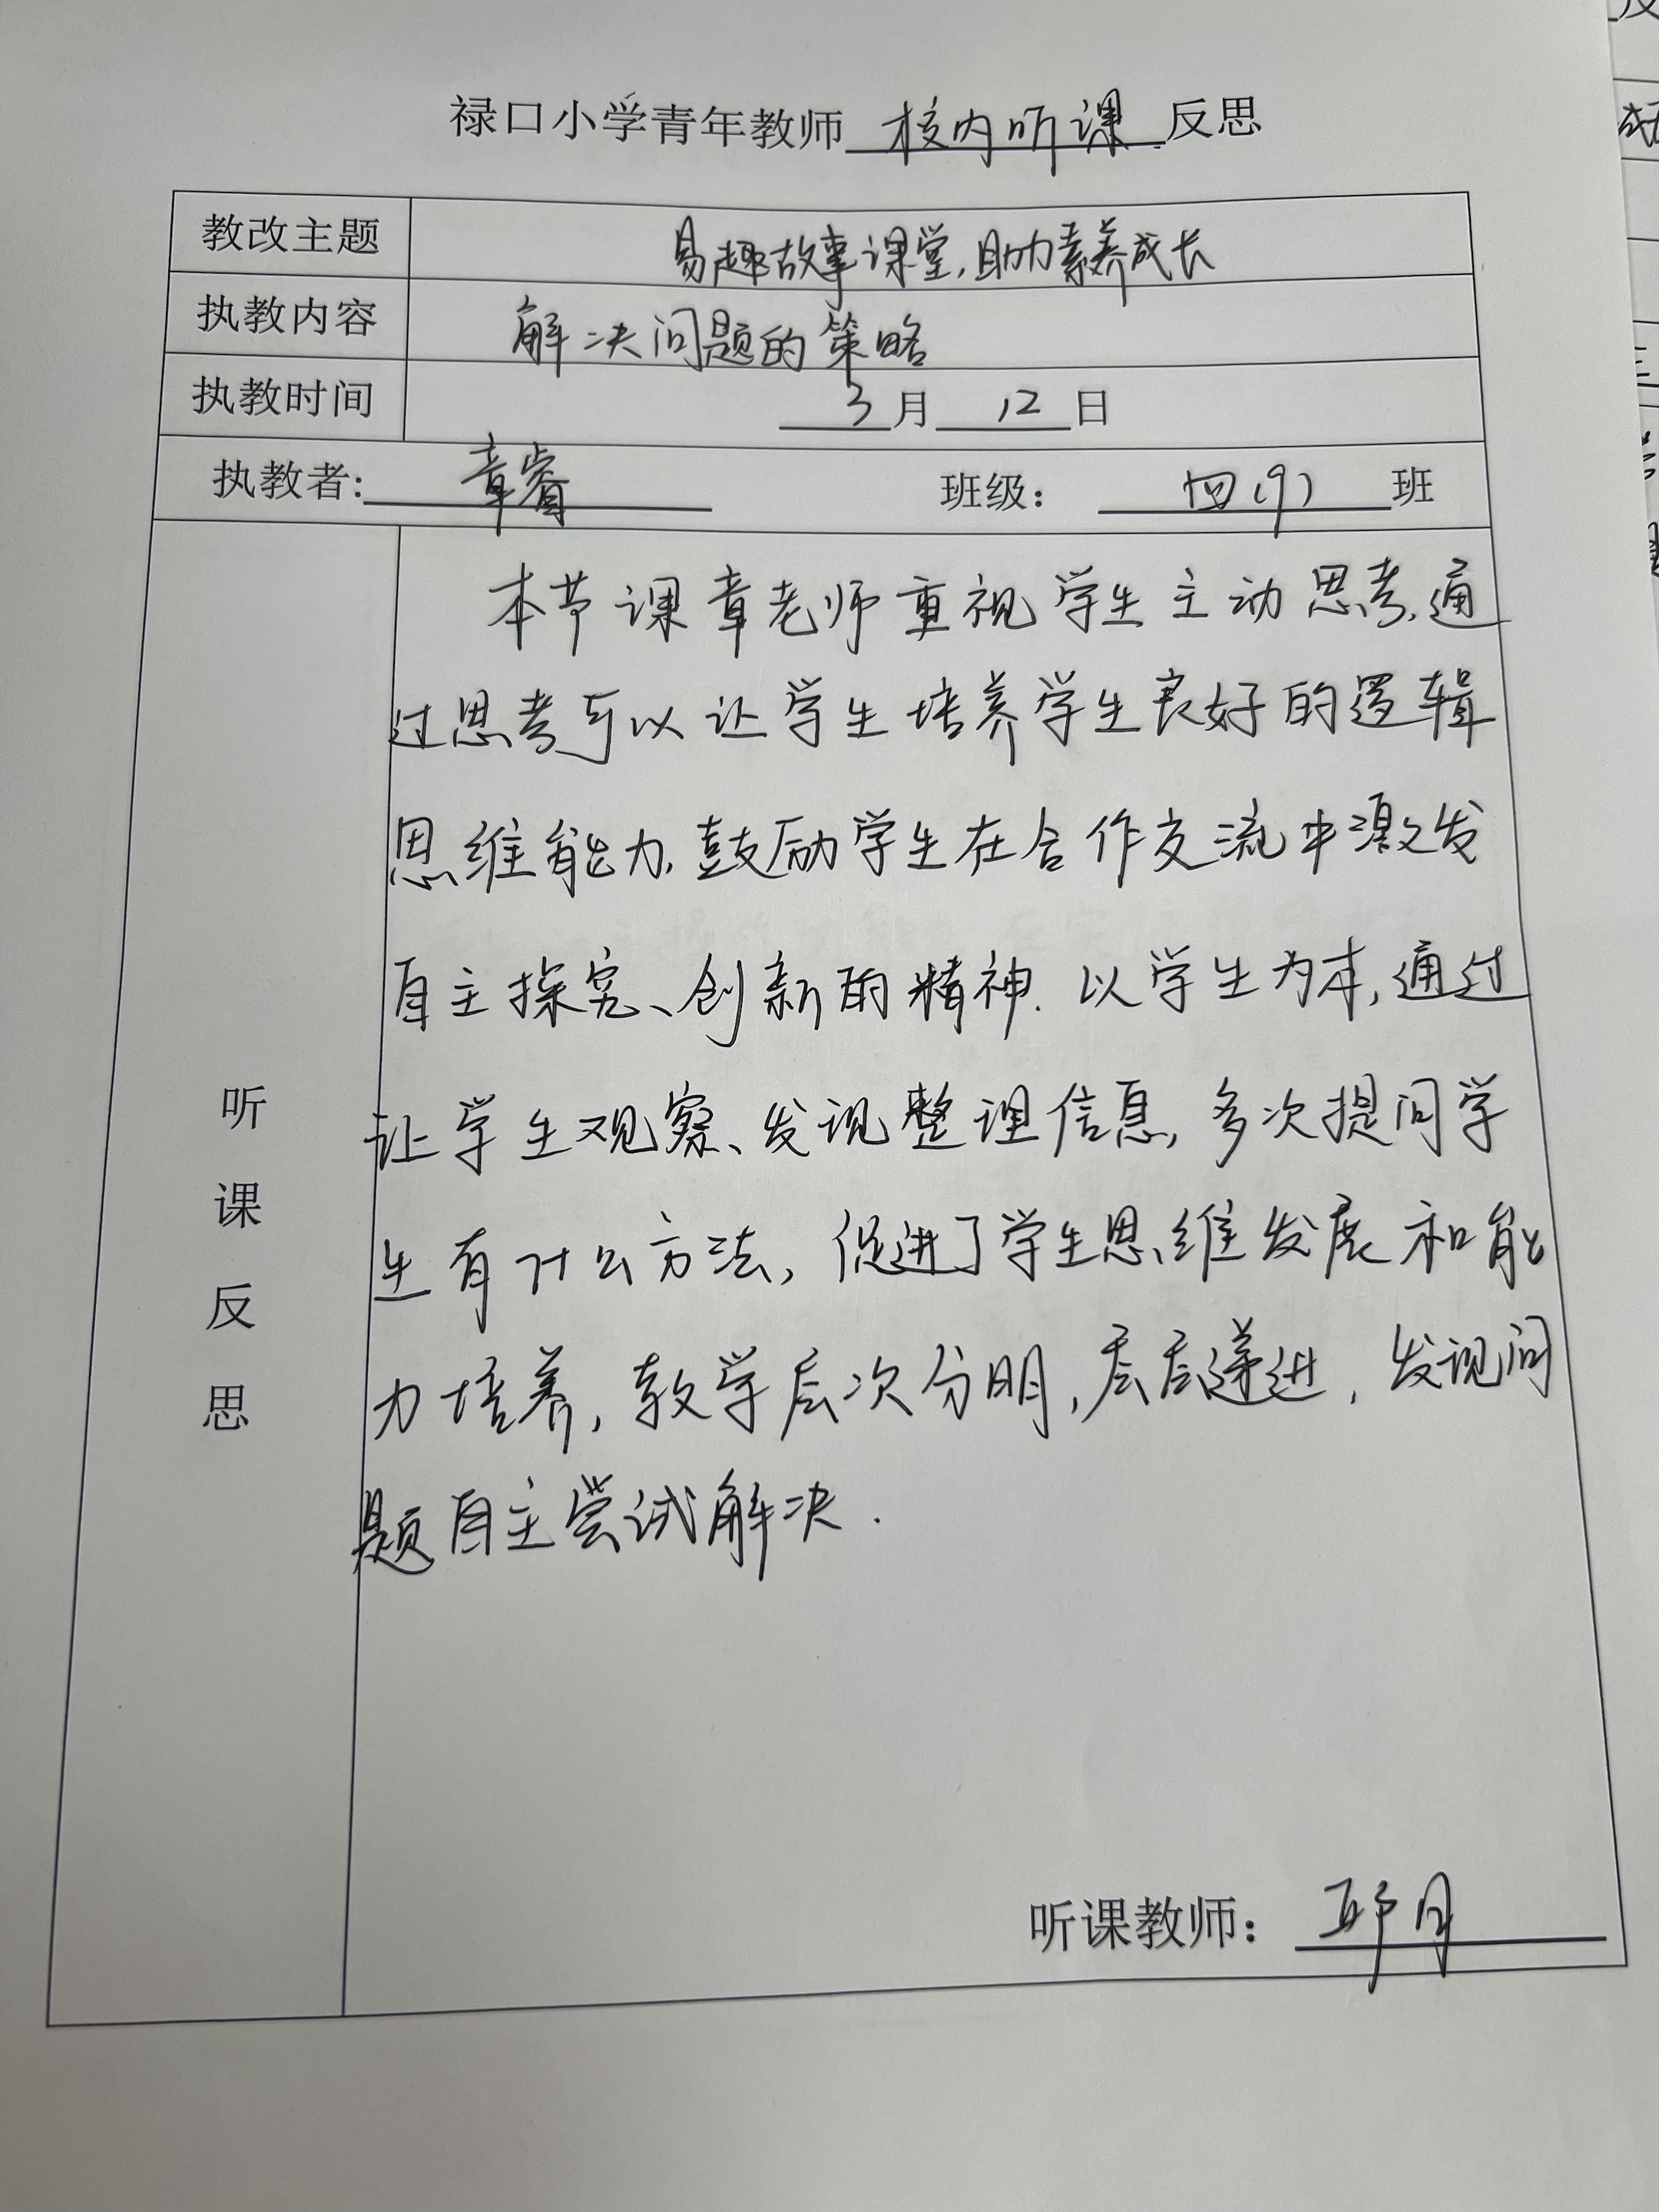 禄口小学青年教师 校内听课 反思
教改主题 易趣故事课堂,助力素养成长
执教内容 解决问题的策略
执教时间 3月 12 日
执教者: 章睿 班级: 四(9) 班
本节课章老师重视学生主动思考,通
过思考可以让学生培养学生良好的逻辑
思维能力,鼓励学生在合作交流中激发
自主探究、创新的精神. 以学生为本,通过
让学生观察、发现整理信息,多次提问学
生有什么方法,促进了学生思维发展和能
力培养,教学层次分明,层层递进,发现问
题自主尝试解决.
听
课
反
思
听课教师: 月